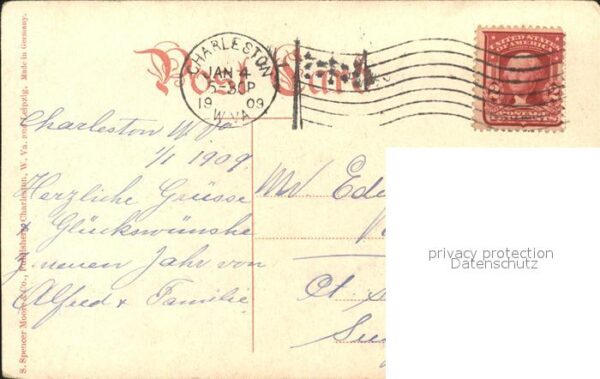 Post Card
CHARLESTON
JAN 4
5-30P
1909
W.VA.
UNITED STATES
OF AMERICA
POSTAGE
Charleston W Va
1/1 1909.
Herzliche Grüsse
& Glückswünsche
z. neuen Jahr von
Alfred & Familie
Mr. Ede
Ct. S
S. Spencer Moore & Co., Publishers, Charleston, W. Va. and Leipzig. Made in Germany.
privacy protection
Datenschutz